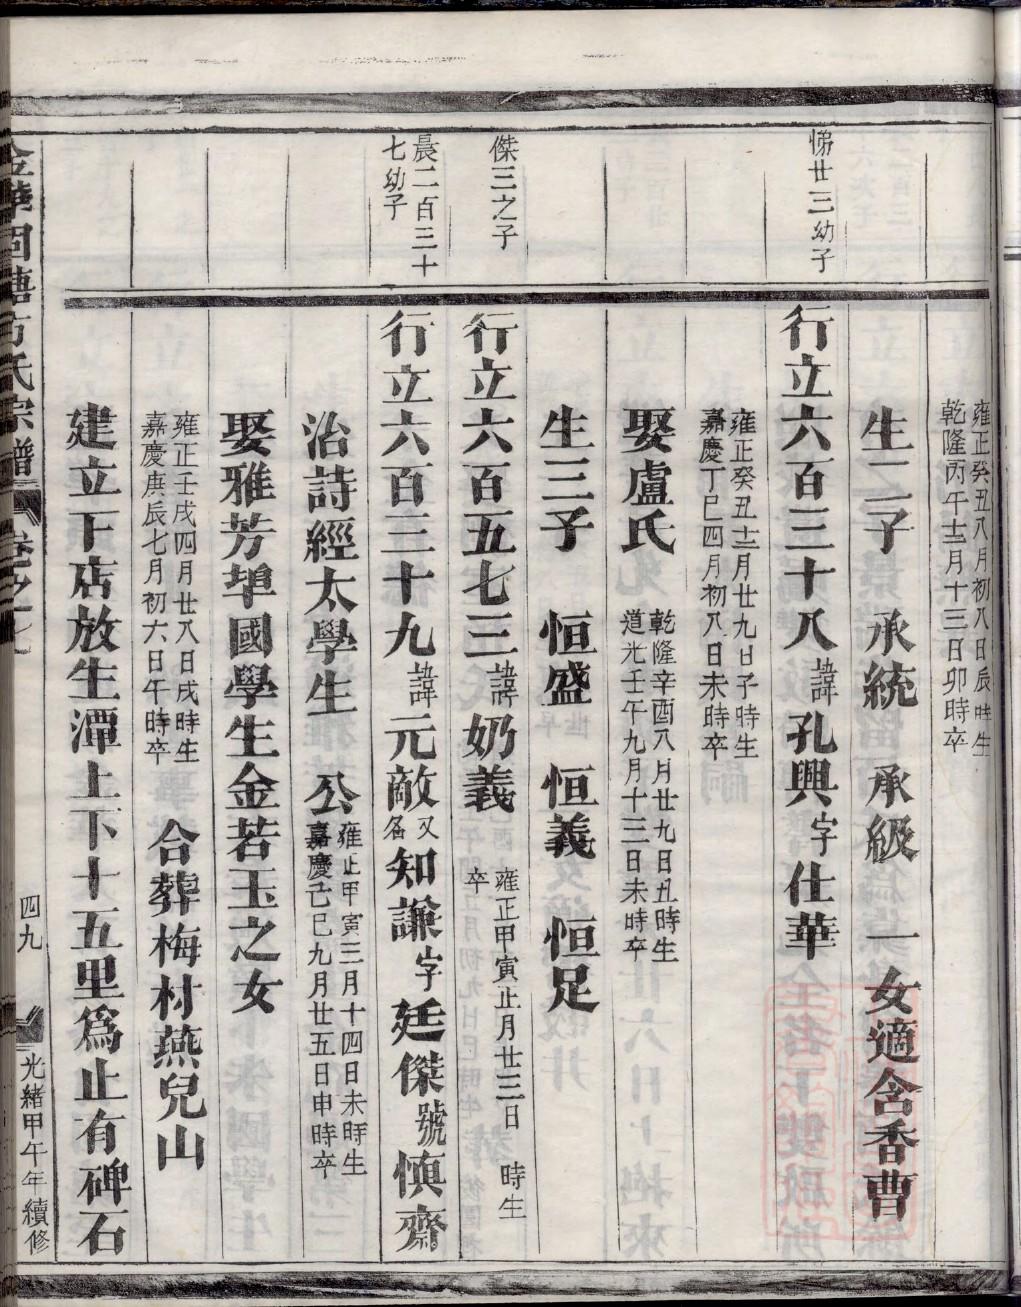 雍正癸丑八月初八日辰時生
乾隆丙午十二月十三日卯時卒
生二子 承統 承級 一女適含香曹
悌廿三幼子
行立六百三十八諱孔興字仕華
雍正癸丑十二月廿九日子時生
嘉慶丁巳四月初八日未時卒
娶盧氏
乾隆辛酉八月廿九日丑時生
道光壬午九月十三日未時卒
生三子 恒盛 恒義 恒足
傑三之子
行立六百五七三諱奶義
雍正甲寅正月廿三日 時生
卒
晨二百三十
七幼子
行立六百三十九諱元敵又名知謙字廷傑號慎齋
治詩經太學生 公
雍正甲寅三月十四日未時生
嘉慶己巳九月廿五日申時卒
娶雅芳埠國學生金若玉之女
雍正壬戌四月廿八日戌時生
嘉慶庚辰七月初六日午時卒
合葬梅村燕兒山
建立下店放生潭上下十五里為止有碑石
金華固塘方氏宗譜
四九
光緒甲午年續修